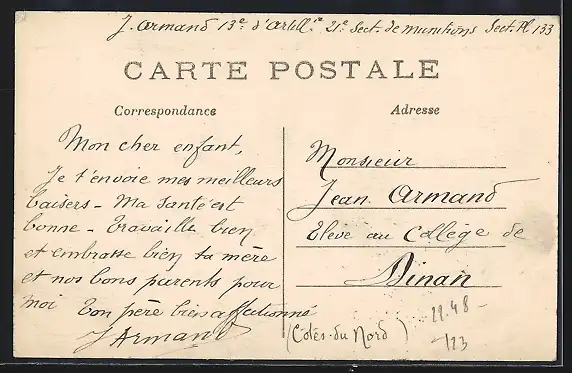 J. Armand 13e d'Artill.ie 21e Sect. de munitions Sect. Pl 133
CARTE POSTALE
Correspondance
Adresse
Mon cher enfant,
Je t'envoie mes meilleurs
baisers - Ma santé est
bonne - Travaille bien
et embrasse bien ta mère
et nos bons parents pour
moi Ton père bien affectionné
J Armand
Monsieur
Jean Armand
Elève au Collège de
Dinan
(Côtes-du Nord)
22.48 -
123